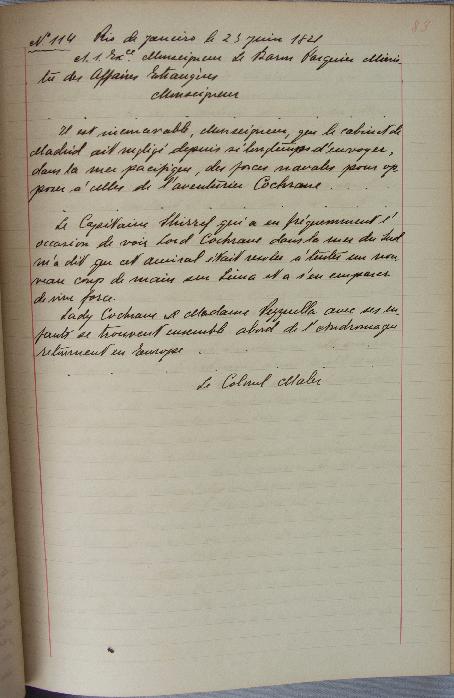 83
Nº 114 Rio de janeiro le 23 juin 1821
A. S. Exce. Monseigneur Le Baron Pasquier Minis-
tre des Affaires Etrangères
Monseigneur
Il est inconcevable, Monseigneur, que le cabinet de
Madrid ait negligé depuis si longtemps d'envoyer,
dans la mer pacifique, des forces navales pour op-
poser à celles de l'aventurier Cochrane.
Le Capitaine Shirref qui a eu fréquemment l'
occasion de voir lord Cochrane dans la mer du Sud
m'a dit que cet amiral était résolu à tenter un nou-
veau coup de main sur Lima et a s'en emparer
de vive force.
Lady Cochrane et Madame Pezuella avec ses en-
fants se trouvent ensemble abord de l'Andromaque
retournent en Europe
Le Colonel Maler